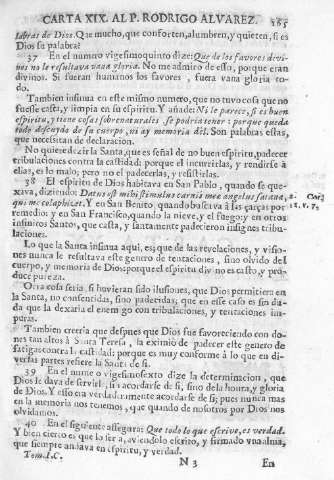 CARTA XIX. AL P. RODRIGO ALVAREZ. 265
labras de Dios. Que mucho, que conforten, alumbren, y quieten, si es
Dios su palabra?
37 En el numero vigesimoquinto dize: Que de los favores devi-
nos no le resultava vana gloria. No me admiro de esso, porque eran
divinos. Si fueran humanos los favores, fuera vana gloria to-
do.
Tambien insinua en este mismo numero, que no tuvo cosa que no
fuesse casta, y limpia en su espiritu. Y añade: Ni le parece, si es buen
espiritu, y tiene cosas sobrenaturales se podria tener: porque queda
todo descuydo de su cuerpo, ni ay memoria dèl. Son palabras estas,
que necessitan de declaracion.
No quiere dezir la Santa, que es señal de no buen espiritu, padecer
tribulaciones contra la castidad: porque el incurrirlas, y rendirse à
ellas, es lo malo; pero no el padecerlas, y resistirlas.
38 El espiritu de Dios habitava en San Pablo, quando se que-
xava, diziendo: Datus est mihi stimulus carnis meæ angelus satanæ,
qui me colaphizet. Y en San Benito, quando buscava à las çarças por
2. Cor.
12. v. 7.
remedio: y en San Francisco, quando la nieve, y el fuego: y en otros
infinitos Santos, que casta, y santamente padecieron insignes tribu-
laciones.
Lo que la Santa insinua aqui, es; que de las revelaciones, y visio-
nes nunca le resultava este genero de tentaciones, sino olvido del
cuerpo, y memoria de Dios: porque el espiritu divino es casto, y pro-
duce pureza.
Otra cosa seria, si huvieran sido ilusiones, que Dios permitiera en
la Santa, no consentidas, sino padecidas; que en esse caso es sin du-
da que la dexaria el enemigo con tribulaciones, y tentaciones im-
puras.
Tambien creeria que despues que Dios fue favoreciendo con do-
nes tan altos à Santa Teresa, la eximiò de padecer este genero de
fatigas contra la castidad: porque es muy conforme à lo que en di-
versas partes refiere la Santa de si.
39 En el numero vigesimosexto dize la determinacion, que
Dios le dava de servirle, sin acordarse de si, sino de la honra, y gloria
de Dios. Y esso era verdaderamente acordarse de si; pues nunca mas
en la memoria nos tenemos, que quando de nosotros por Dios nos
olvidamos.
40 En el siguiente assegura: Que todo lo que escrive, es verdad.
Y bien cierto es que lo serà, aviendolo escrito, y firmado vna alma,
que siempre andava en espiritu, y verdad.
Tom. I. C. N 3 En